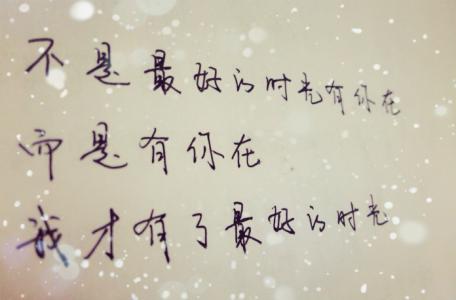 不是最好的时光有你在
而是有你在
我才有了最好的时光